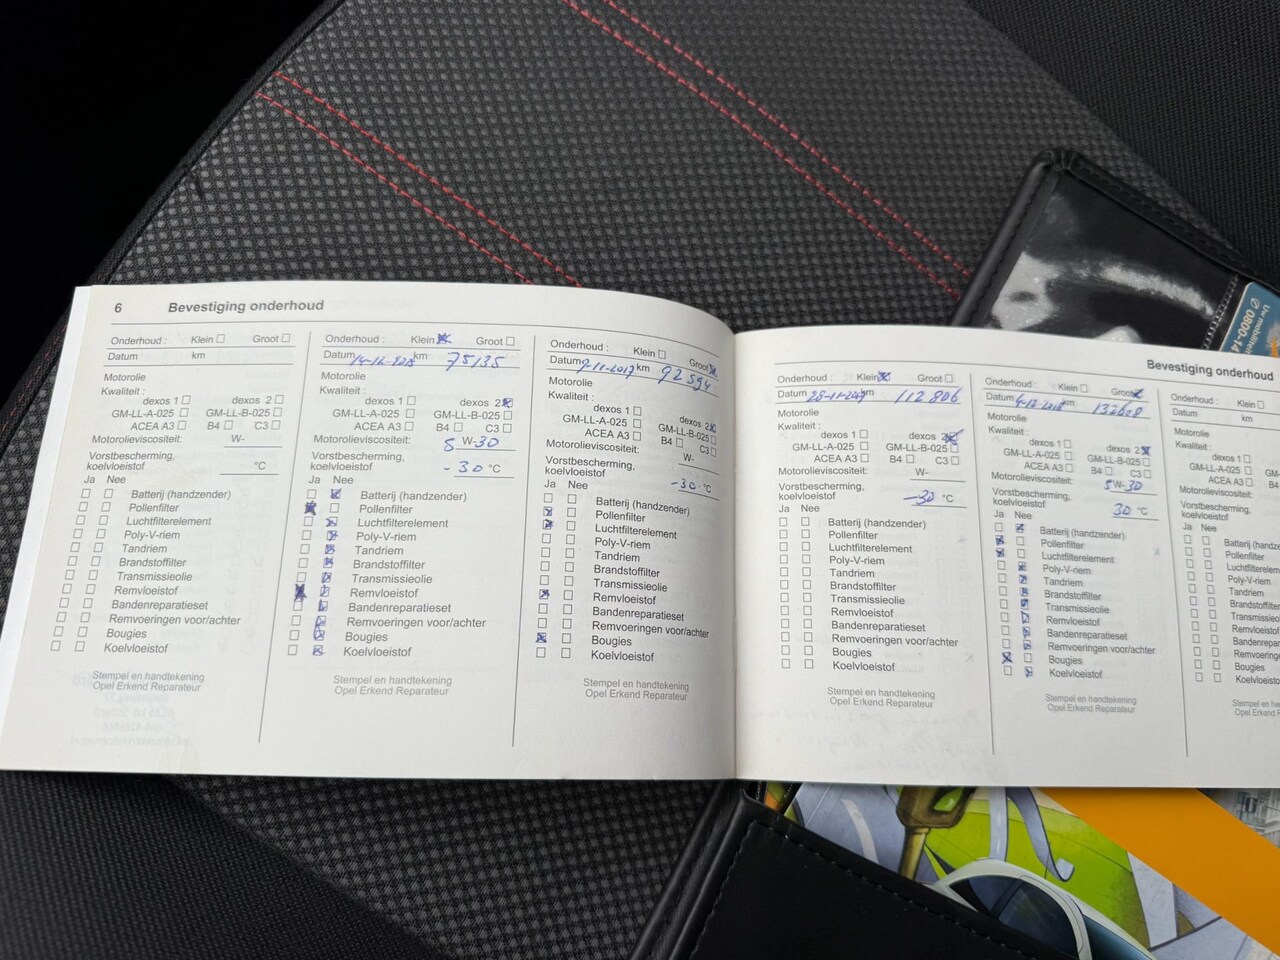 6 Bevestiging onderhoud
Onderhoud : Klein Groot
Datum km
Motorolie
Kwaliteit :
dexos 1 dexos 2
GM-LL-A-025 GM-LL-B-025
ACEA A3 B4 C3
Motorolieviscositeit: W-
Vorstbescherming,
koelvloeistof °C
Ja Nee
Batterij (handzender)
Pollenfilter
Luchtfilterelement
Poly-V-riem
Tandriem
Brandstoffilter
Transmissieolie
Remvloeistof
Bandenreparatieset
Remvoeringen voor/achter
Bougies
Koelvloeistof
Stempel en handtekening
Opel Erkend Reparateur
Onderhoud : Klein Groot
Datum km 75135
Motorolie
Kwaliteit :
dexos 1 dexos 2
GM-LL-A-025 GM-LL-B-025
ACEA A3 B4 C3
Motorolieviscositeit: 5 W-30
Vorstbescherming,
koelvloeistof -30 °C
Ja Nee
Batterij (handzender)
Pollenfilter
Luchtfilterelement
Poly-V-riem
Tandriem
Brandstoffilter
Transmissieolie
Remvloeistof
Bandenreparatieset
Remvoeringen voor/achter
Bougies
Koelvloeistof
Stempel en handtekening
Opel Erkend Reparateur
Onderhoud : Klein Groot
Datum 9-11-2017 km 92594
Motorolie
Kwaliteit :
dexos 1 dexos 2
GM-LL-A-025 GM-LL-B-025
ACEA A3 B4 C3
Motorolieviscositeit: W-
Vorstbescherming,
koelvloeistof -30 °C
Ja Nee
Batterij (handzender)
Pollenfilter
Luchtfilterelement
Poly-V-riem
Tandriem
Brandstoffilter
Transmissieolie
Remvloeistof
Bandenreparatieset
Remvoeringen voor/achter
Bougies
Koelvloeistof
Stempel en handtekening
Opel Erkend Reparateur
Bevestiging onderhoud
Onderhoud : Klein Groot
Datum km 112806
Motorolie
Kwaliteit :
dexos 1 dexos 2
GM-LL-A-025 GM-LL-B-025
ACEA A3 B4 C3
Motorolieviscositeit: W-
Vorstbescherming,
koelvloeistof -30 °C
Ja Nee
Batterij (handzender)
Pollenfilter
Luchtfilterelement
Poly-V-riem
Tandriem
Brandstoffilter
Transmissieolie
Remvloeistof
Bandenreparatieset
Remvoeringen voor/achter
Bougies
Koelvloeistof
Stempel en handtekening
Opel Erkend Reparateur
Onderhoud : Klein Groot
Datum km
Motorolie
Kwaliteit :
dexos 1 dexos 2
GM-LL-A-025 GM-LL-B-025
ACEA A3 B4 C3
Motorolieviscositeit: 5W-30
Vorstbescherming,
koelvloeistof 30 °C
Ja Nee
Batterij (handzender)
Pollenfilter
Luchtfilterelement
Poly-V-riem
Tandriem
Brandstoffilter
Transmissieolie
Remvloeistof
Bandenreparatieset
Remvoeringen voor/achter
Bougies
Koelvloeistof
Stempel en handtekening
Opel Erkend Reparateur
Onderhoud : Klein
Datum km
Motorolie
Kwaliteit :
dexos 1
GM-LL-A-025
ACEA A3 B4
Motorolieviscositeit:
Vorstbescherming,
koelvloeistof
Ja Nee
Pollenfilter
Poly-V-riem
Tandriem
Bougies
Koelvloeistof
Uw
0800-14